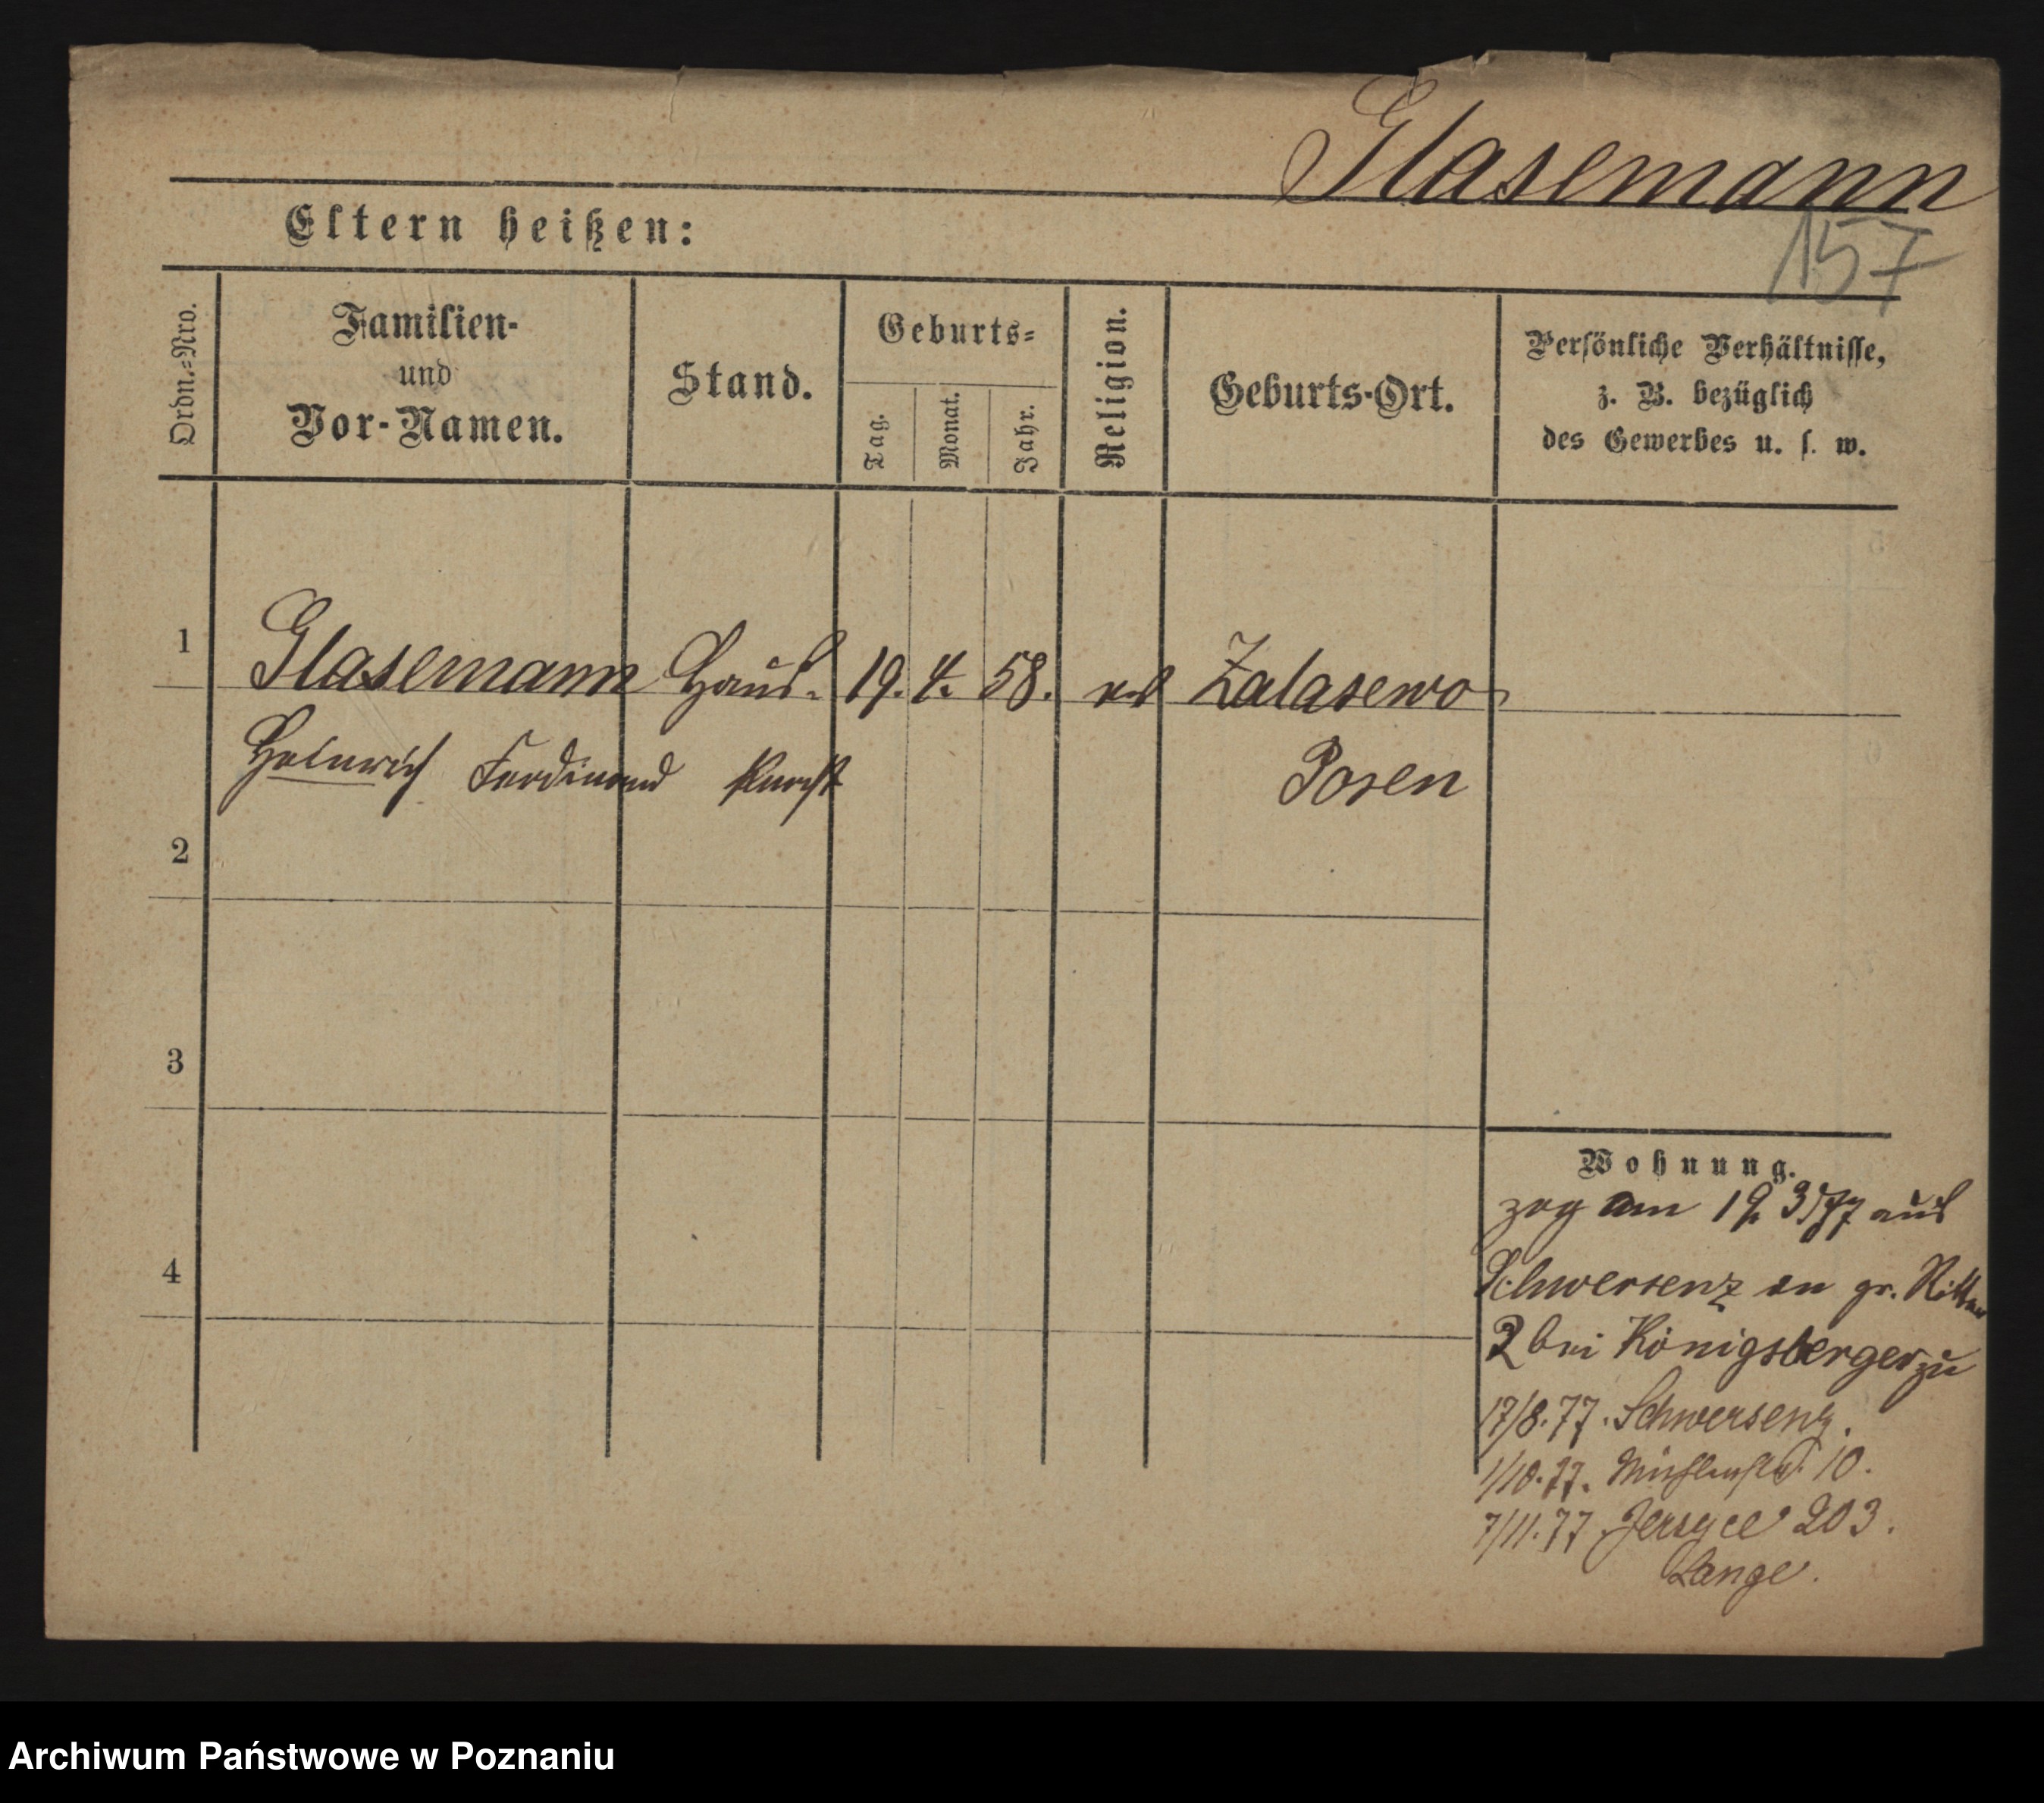 Glasemann
157
Eltern heißen:
Ordn.-Nro.
Familien-
und
Vor-Namen.
Stand.
Geburts-
Tag.
Monat.
Jahr.
Religion.
Geburts-Ort.
Persönliche Verhältnisse,
z. B. bezüglich
des Gewerbes u. s. w.
1 Glasemann Haus- 19. 4. 58. Zalasewo
Heinrich Ferdinand Knecht Posen
2
3
4
Wohnung.
zog am 19 3/77 aus
Schwersenz an gr. Ritter
2 bei Königsberger zu
17/8.77. Schwersenz.
1/10.77. Mühlenstr. 10.
7/11.77 Jersyce 203.
Lange.
Archiwum Państwowe w Poznaniu